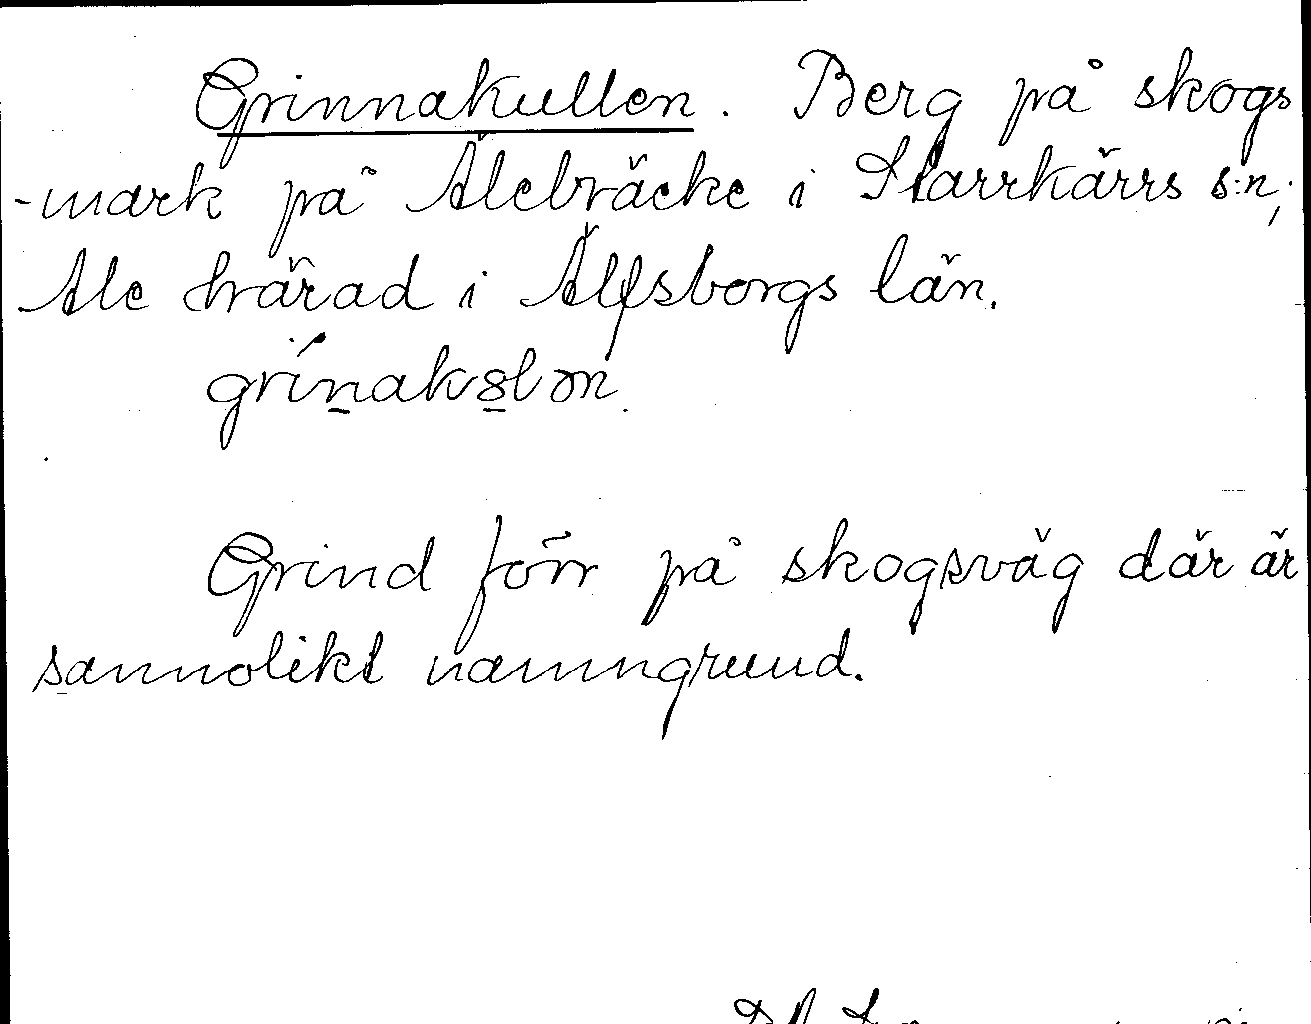 Grinnakullen. Berg på skogs
-mark på Älebräcke i Starrkärrs s:n,
Ale härad i Älfsborgs län.
grinakslən.
Grind förr på skogsväg där är
sannolikt namngrund.